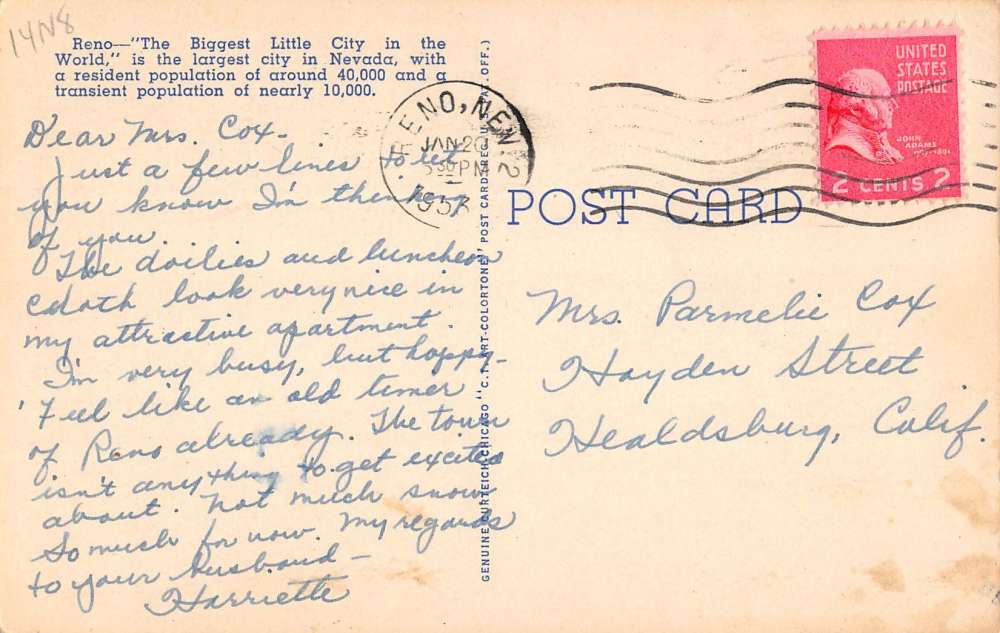 14N8
Reno—"The Biggest Little City in the
World," is the largest city in Nevada, with
a resident population of around 40,000 and a
transient population of nearly 10,000.
Dear Mrs. Cox-
Just a few lines to let
you know I'm thinking
of you.
The doilies and luncheon
cloth look very nice in
my attractive apartment.
I'm very busy, but happy-
Feel like an old timer
of Reno already. The town
isn't anything to get excited
about. Not much snow
So much for now. My regards
to your husband—
Harriette
GENUINE CURTEICH-CHICAGO "C.T. ART-COLORTONE" POST CARD (REG. U.S. PAT. OFF.)
RENO, NEV. 2
JAN 20
PM
1953
POST CARD
UNITED
STATES
POSTAGE
JOHN
ADAMS
2 CENTS 2
Mrs. Parmelie Cox
Hayden Street
Healdsburg, Calif.